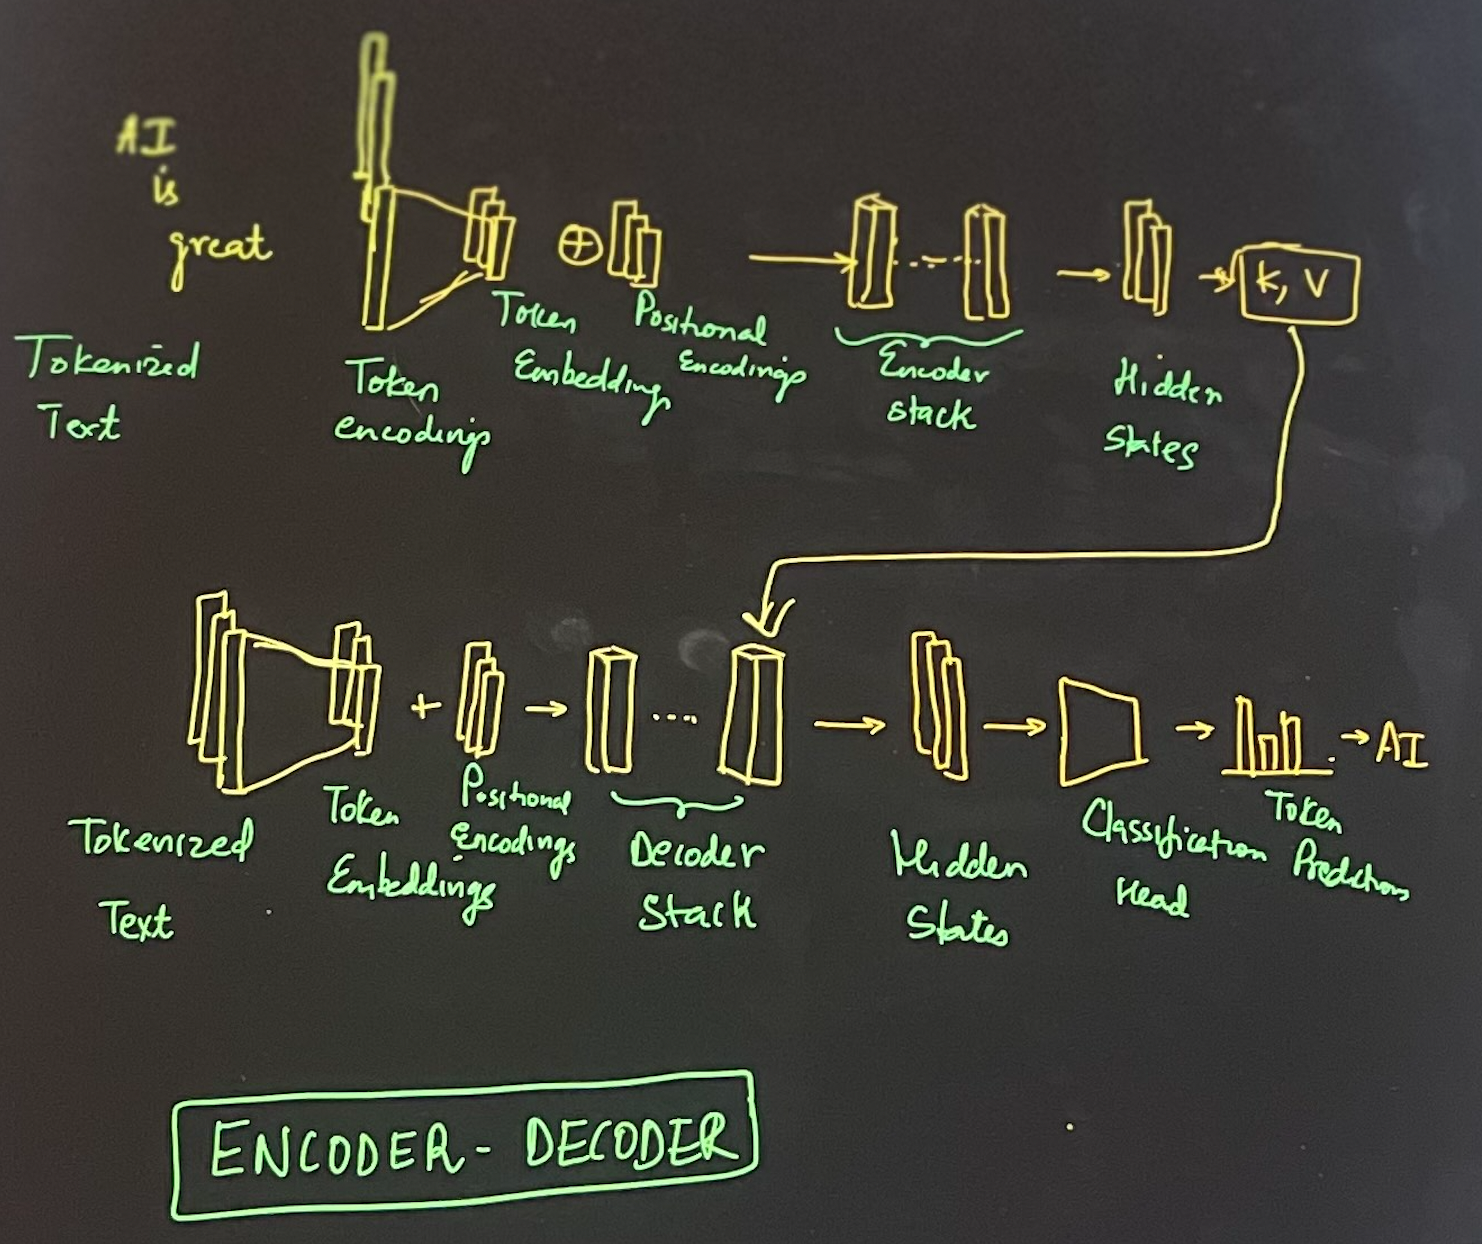 AI
is
great
⊕
K, V
Tokenized
Text
Token
encodings
Token
Embedding
Positional
Encodings
Encoder
Stack
Hidden
States
+
AI
Tokenized
Text
Token
Embeddings
Positional
Encodings
Decoder
Stack
Hidden
States
Classification
Head
Token
Predictions
ENCODER - DECODER